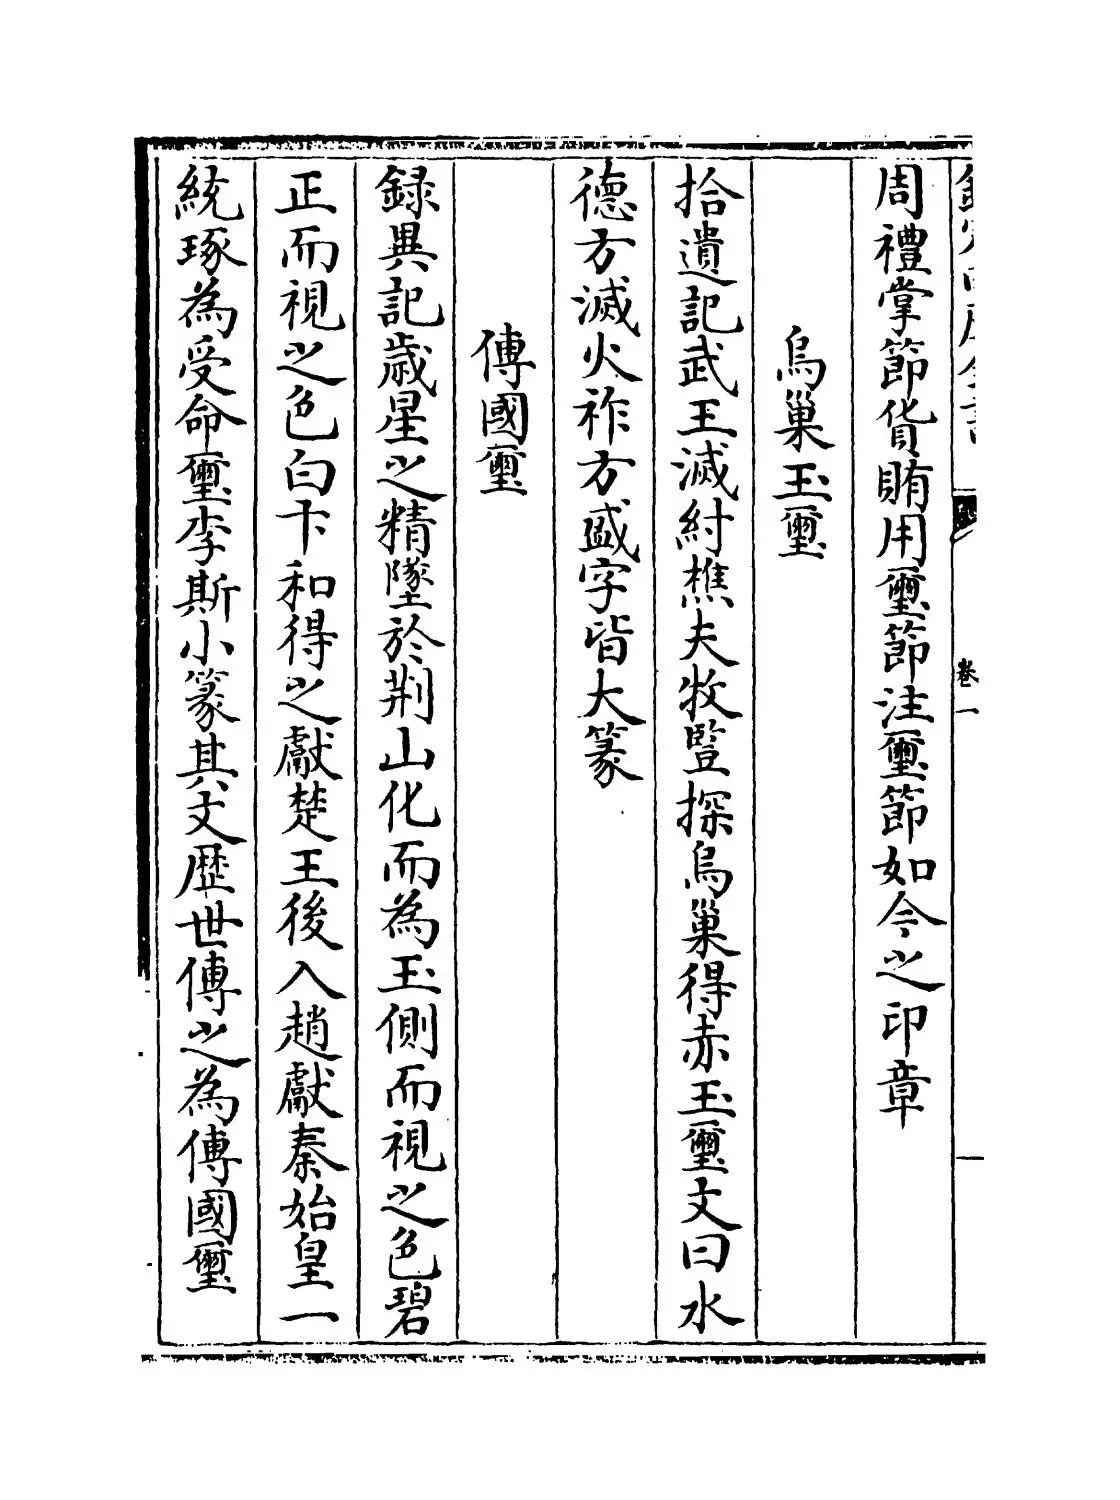 欽定四庫全書
卷一
周禮掌節貨賄用璽節注璽節如今之印章
烏巢玉璽
拾遺記武王滅紂樵夫牧豎探烏巢得赤玉璽文曰水
德方滅火祚方盛字皆大篆
傳國璽
録異記歳星之精墜於荆山化而為玉側而視之色碧
正而視之色白卞和得之獻楚王後入趙獻秦始皇一
統琢為受命璽李斯小篆其文歴世傳之為傳國璽